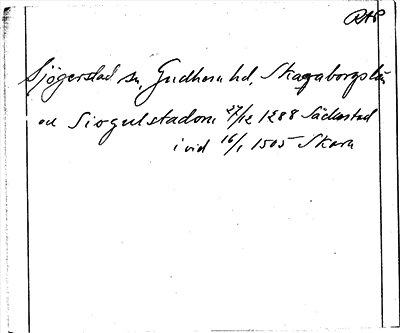 RAP
Sjögerstad sn, Gudhem hd, Skaraborgs län
de Siogulstadom 27/12 1288 Säckestad
i vid 16/1 1505 Skara